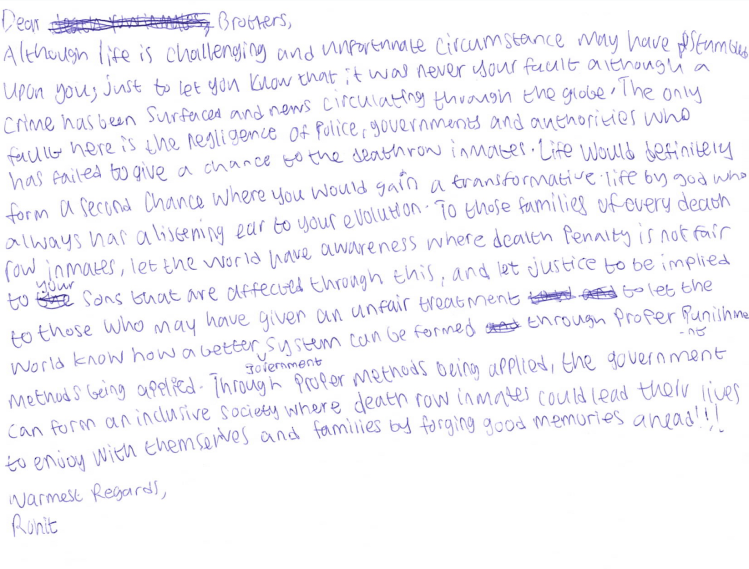 Dear Brothers,
Although life is challenging and unfortunate circumstance may have stumbled
upon you, just to let you know that it was never your fault although a
crime has been surfaced and news circulating through the globe. The only
fault here is the negligence of Police, governments and authorities who
has failed to give a chance to the deathrow inmates. Life would definitely
form a second chance where you would gain a transformative life by god who
always has a listening ear to your evolution. To those families of every death
row inmates, let the world have awareness where death Penalty is not fair
to your sons that are affected through this, and let justice to be implied
to those who may have given an unfair treatment to let the
world know how a better government system can be formed through Proper Punishment
methods being applied. Through Proper methods being applied, the government
can form an inclusive society where death row inmates could lead their lives
to enjoy with themselves and families by forging good memories ahead!!!
Warmest Regards,
Rohit